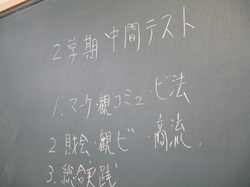 2学期 中間テスト
1. マーケ・観コミュ・ビ法
2 財会・観ビ・商流.
3. 総合実践